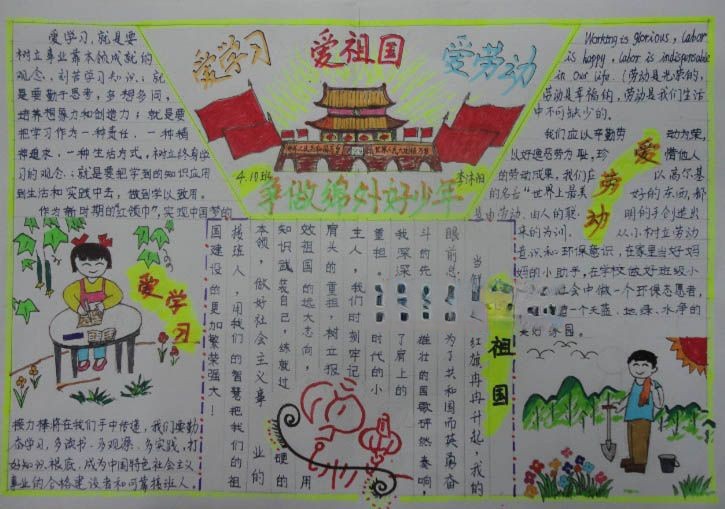 爱学习
爱祖国
爱劳动
4.10班
争做锦外好少年
爱学习,就是要
树立事业靠本领成就的
观念,刻苦学习知识;就
是要勤于思考,多想多问,
培养想象力和创造力;就是要
把学习作为一种责任、一种精
神追求、一种生活方式,树立终身学
习的观念;就是要把学到的知识应用
到生活和实践中去,做到学以致用。
作为新时期的"红领巾",实现中国梦的
爱学习
接力棒将在我们手中传递,我们要勤
奋学习,多读书、多观源、多实践,打
好知识根底,成为中国特色社会主义
事业的合格建设者和可靠接班人。
祖国
当鲜
红旗冉冉升起,我的
眼前总
为了共和国而英勇奋
斗的先
雄壮的国歌
奏响,
我深深
了肩上的
重担
时代的小
主人,我们时刻牢记
肩头的重担,树立报
效祖国的远大志向,用
知识武装自己,练就过硬的
本领,做好社会主义事业的
接班人,用我们的智慧把我们的祖
国建设的更加繁荣强大!
Working is glorious, labor
is happy, labor is indispensable
in our life.(劳动是光荣的,
劳动是幸福的,劳动是我们生活
中不可缺少的。
我们应以辛勤劳动为荣,
以好逸恶劳为耻,珍惜他人
的劳动成果。我们应以高尔基
的名言"世界上最美好的东西,都
是由劳动、由人的聪明的手创造出
来的为训。从小树立劳动
意识和环保意识,在家里当好妈
妈的小助手,在学校做好班级小
社会中做一个环保志愿者,
一个天蓝、地绿、水净的
美好家园。
爱劳动